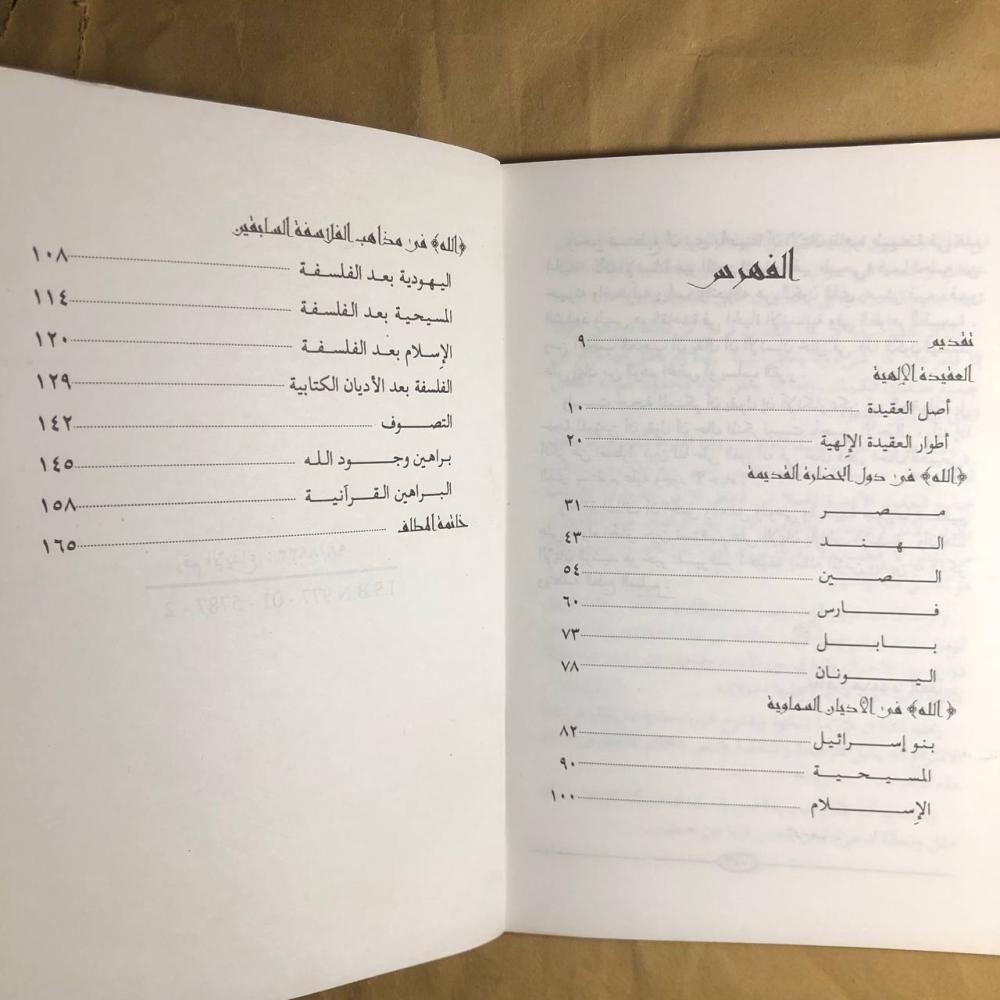 الفهرس
تقديم ٩
العقيدة الإلهية
أصل العقيدة ١٠
أطوار العقيدة الإلهية ٢٠
﴿الله﴾ فى دول الحضارة القديمة
مصر ٣١
الهند ٤٣
الصين ٥٤
فارس ٦٠
بابل ٧٣
اليونان ٧٨
﴿الله﴾ فى الأديان السماوية
بنو إسرائيل ٨٢
المسيحية ٩٠
الإسلام ١٠٠
﴿الله﴾ فى مذاهب الفلاسفة السابقين
اليهودية بعد الفلسفة ١٠٨
المسيحية بعد الفلسفة ١١٤
الإسلام بعد الفلسفة ١٢٠
الفلسفة بعد الأديان الكتابية ١٢٩
التصوف ١٤٢
براهين وجود الله ١٤٥
البراهين القرآنية ١٥٨
خاتمة المطاف ١٦٥